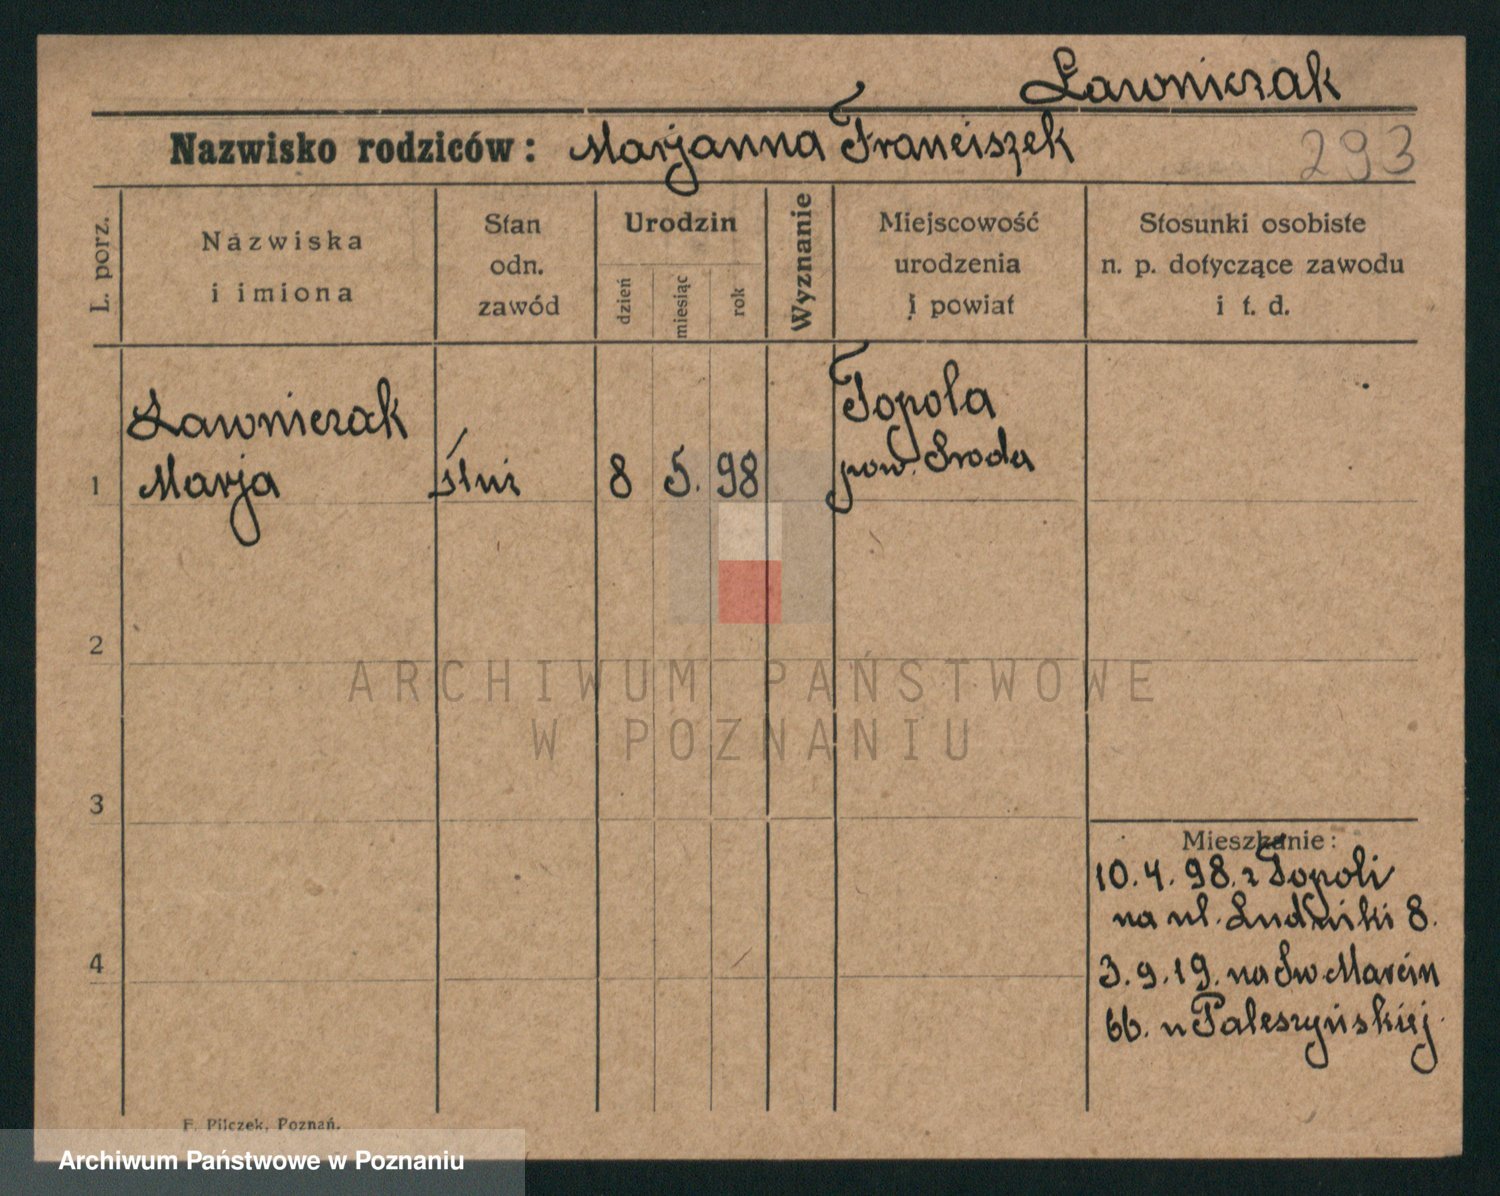 Ławniczak
Nazwisko rodziców: Marjanna Franciszek
293
L. porz.
Nazwiska
i imiona
Stan
odn.
zawód
Urodzin
dzień
miesiąc
rok
Wyznanie
Miejscowość
urodzenia
i powiat
Stosunki osobiste
n. p. dotyczące zawodu
i t. d.
Ławniczak
Marja
1
służ
8 5. 98
Topola
pow. Środa
2
ARCHIWUM PAŃSTWOWE
W POZNANIU
3
4
Mieszkanie:
10. 4. 98. z Topoli
na ul. Ludwiki 8.
3. 9. 19. na Św. Marcin
66. u Paleszyńskiej.
F. Pilczek, Poznań.
Archiwum Państwowe w Poznaniu